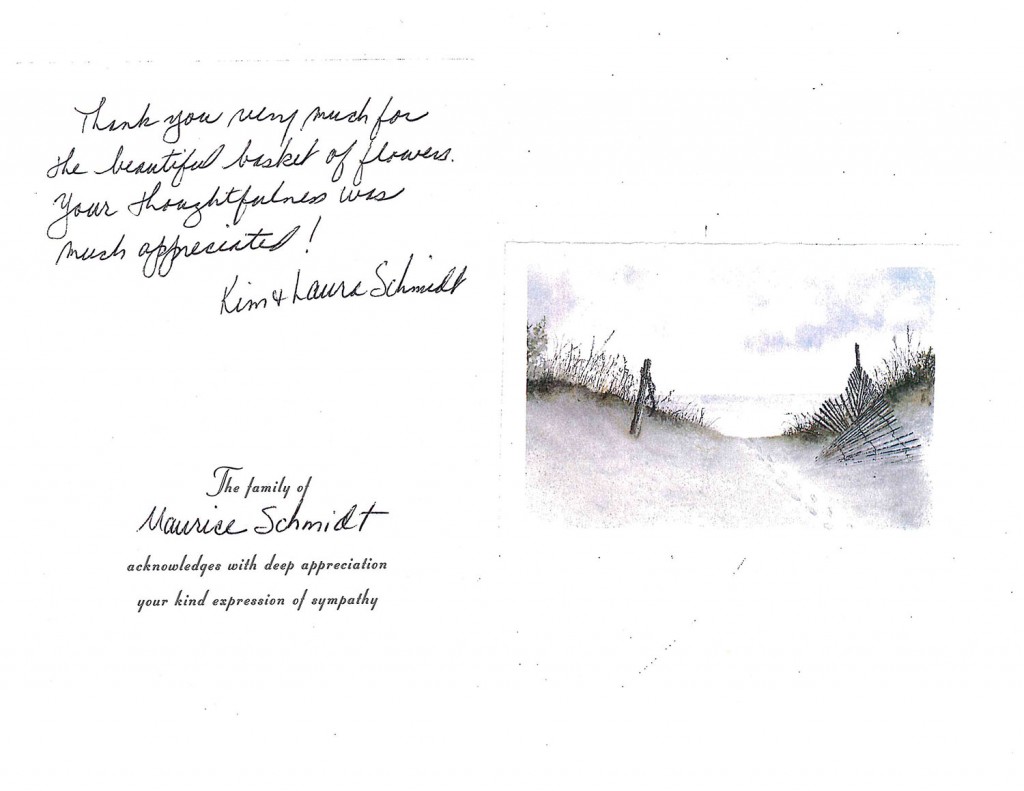 Thank you very much for
the beautiful basket of flowers.
Your thoughtfulness was
much appreciated!
Kim & Laura Schmidt
The family of
Maurice Schmidt
acknowledges with deep appreciation
your kind expression of sympathy